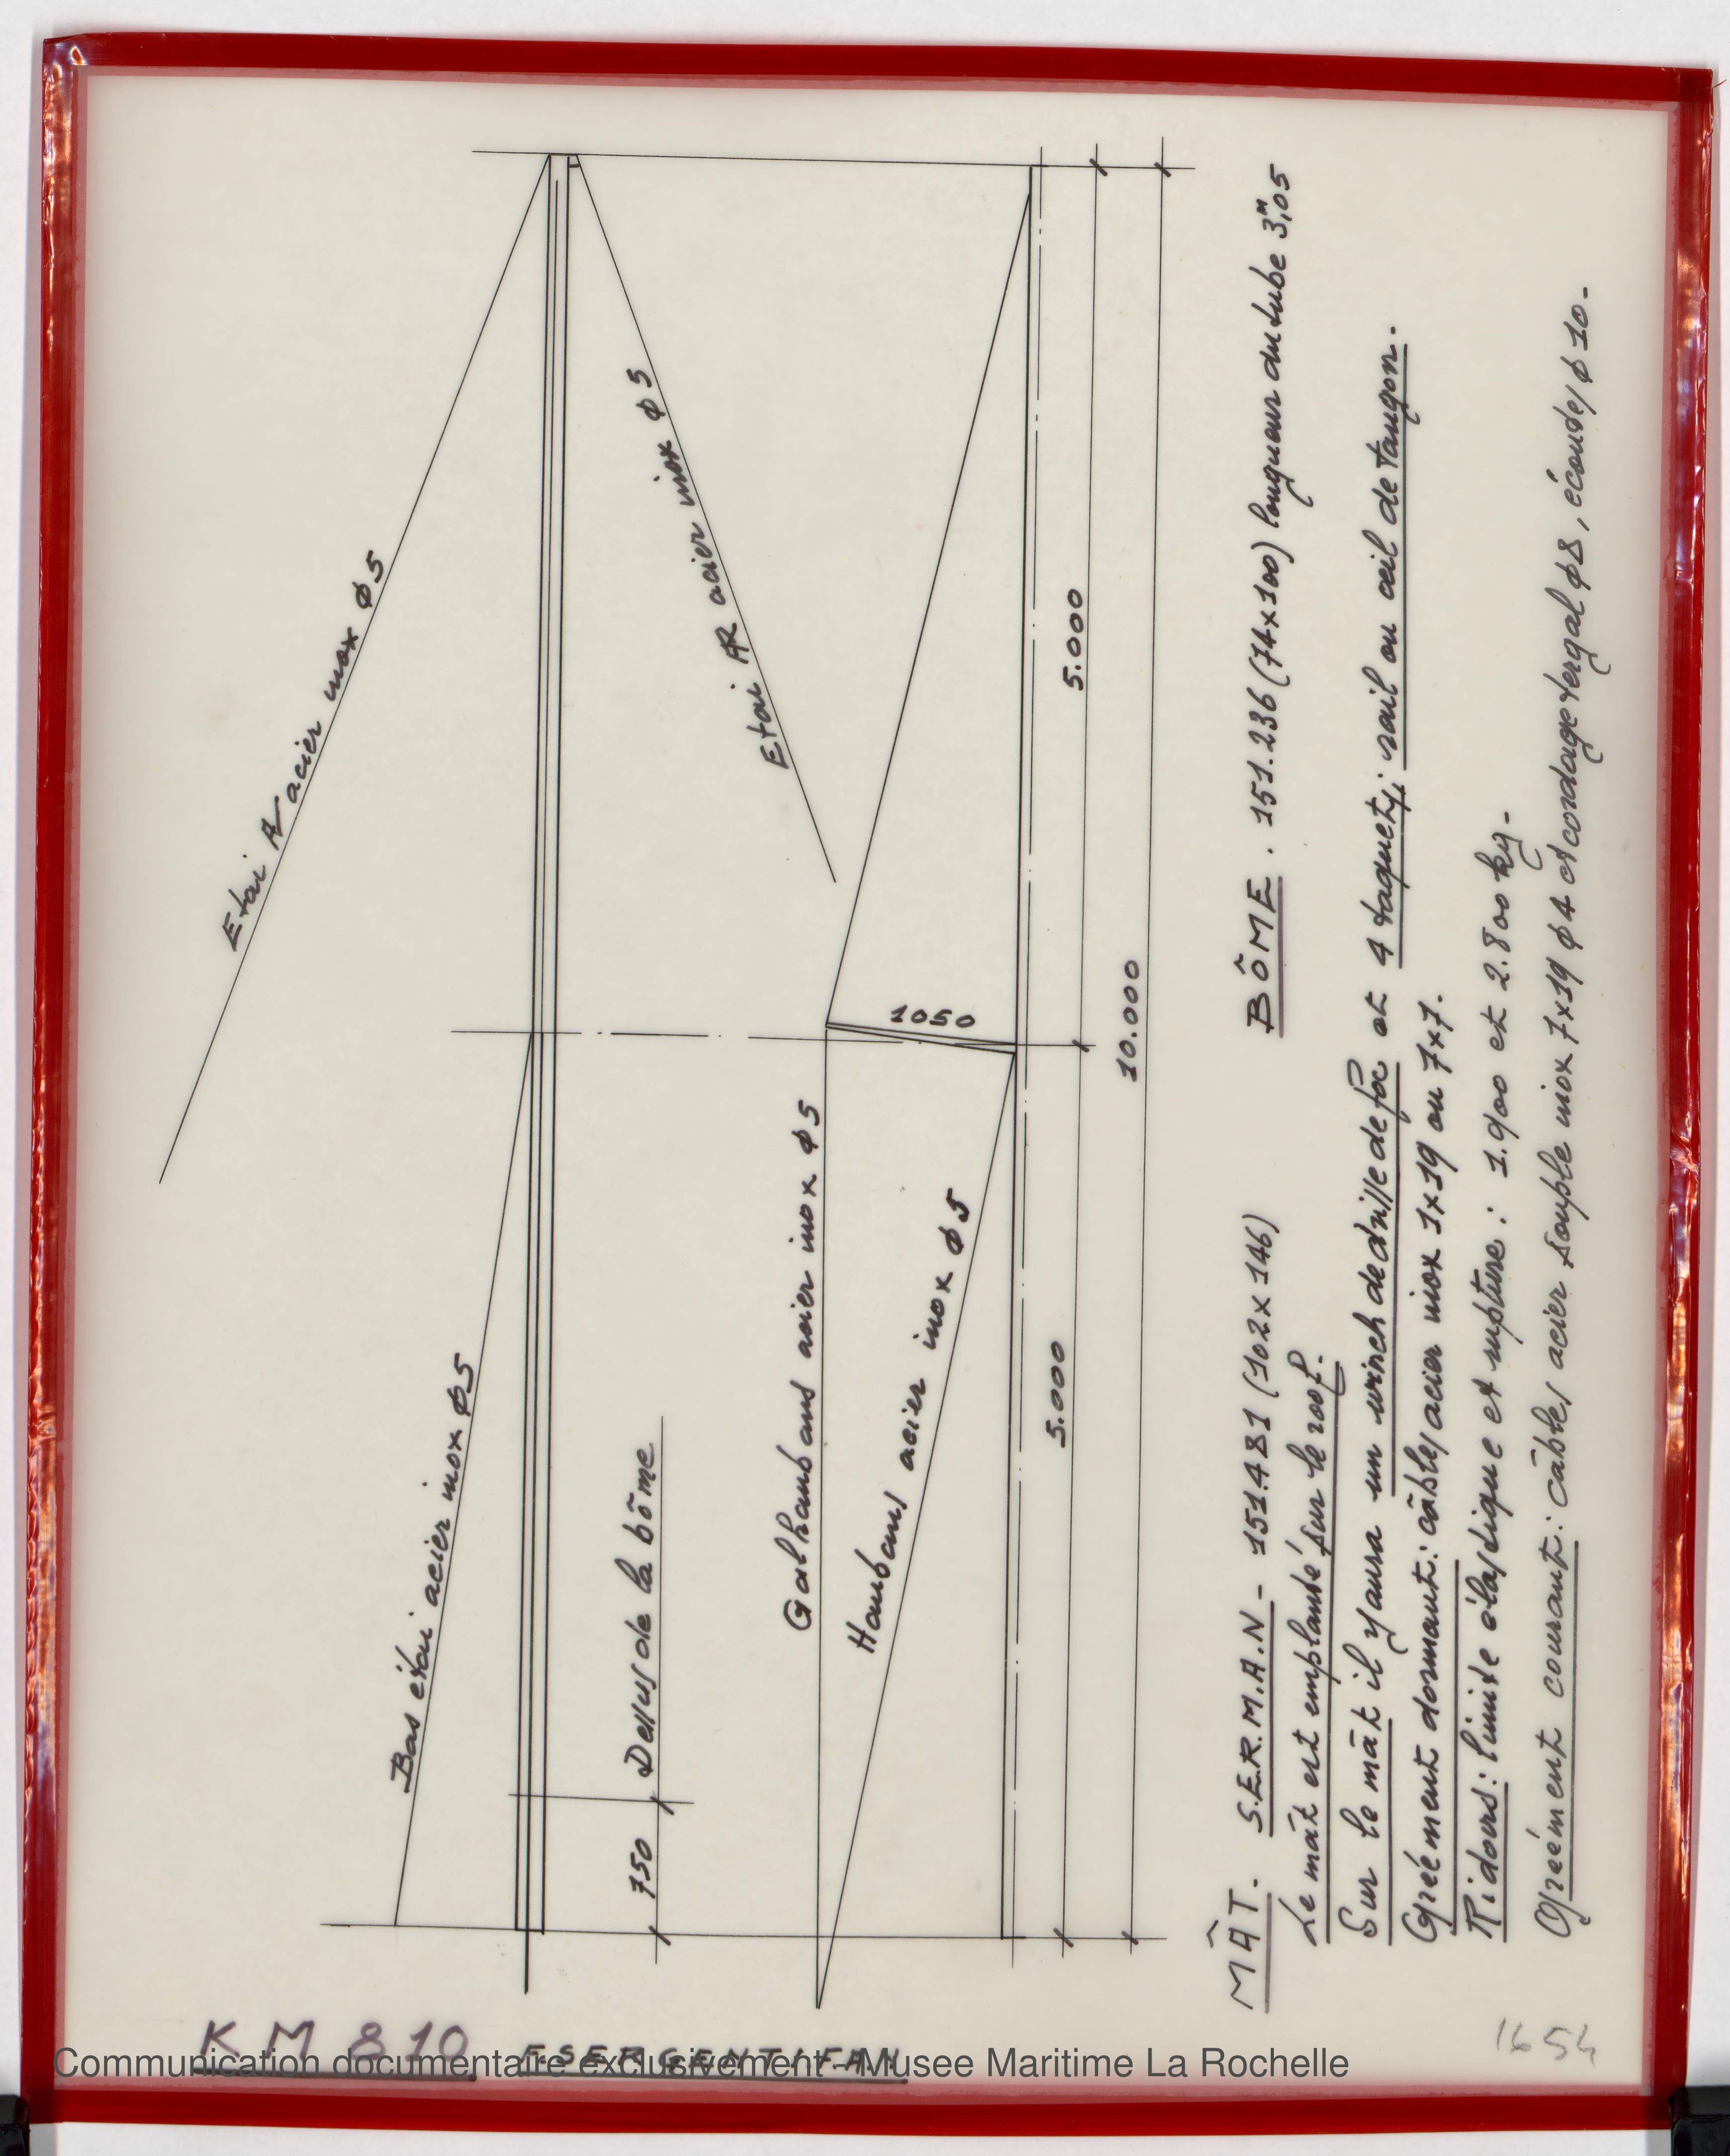 Etai AV acier inox φ5
Bas étai acier inox φ5
Etai AR acier inox φ5
750
Dessus de la bôme
Galhaubans acier inox φ5
Haubans acier inox φ5
1050
5.000
5.000
10.000
MÂT. S.E.R.M.A.N - 151.481 (102x146)
BÔME. 151.236 (74x100) longueur du tube 3m,05
Le mât est emplanté sur le roof.
Sur le mât il y aura un winch de drille de foc et 4 taquets; rail ou œil de tangon.
Gréément dormant: câbles acier inox 1x19 ou 7x7.
Ridoirs: limite élastique et rupture: 1.900 et 2.800 kg-
Gréément courant: câbles acier souple inox 7x19 φ4 et cordage tergal φ8, écoutes φ10-
KM 810
1654
Communication documentaire exclusivement - Musee Maritime La Rochelle